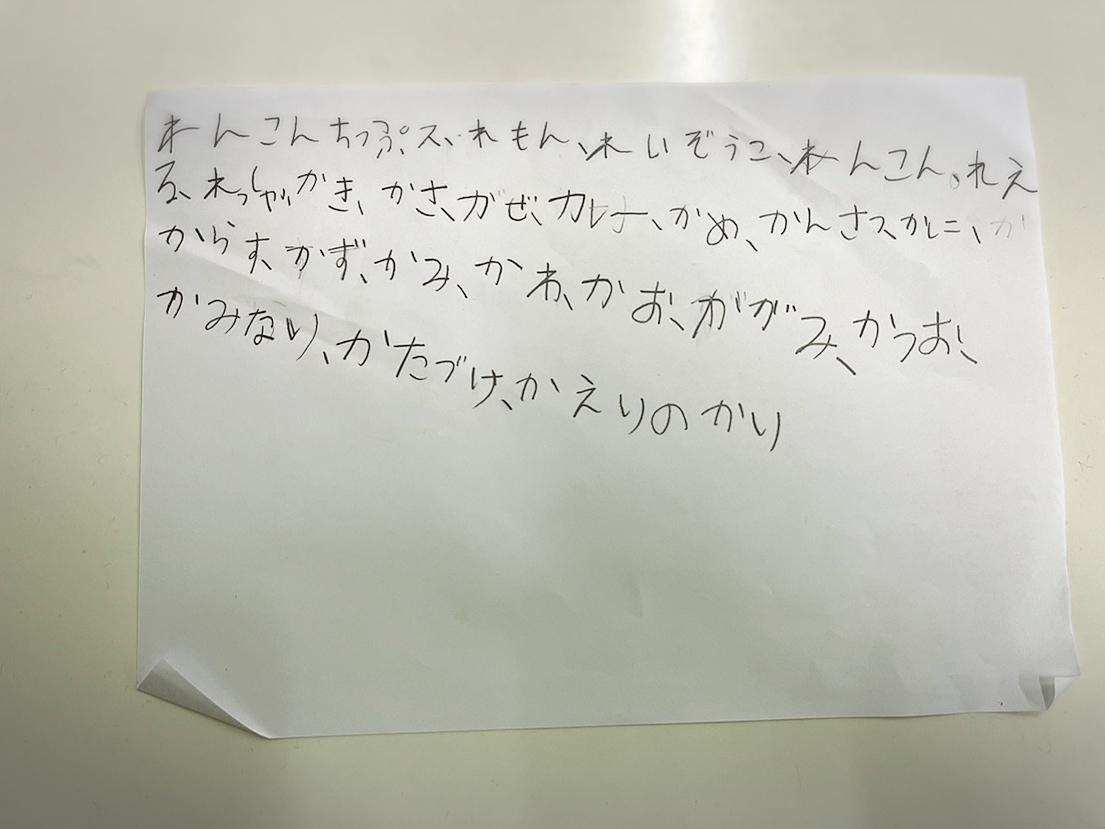 れんこんちっぷス、れもん、れいぞうこ、れんこん、れえ
る、れっしゃ、かき、かさ、かぜ、カレー、かめ、かんさつ、かに、か
からす、かず、かみ、かわ、かお、ががみ、かつお、
かみなり、かたづけ、かえりのかり